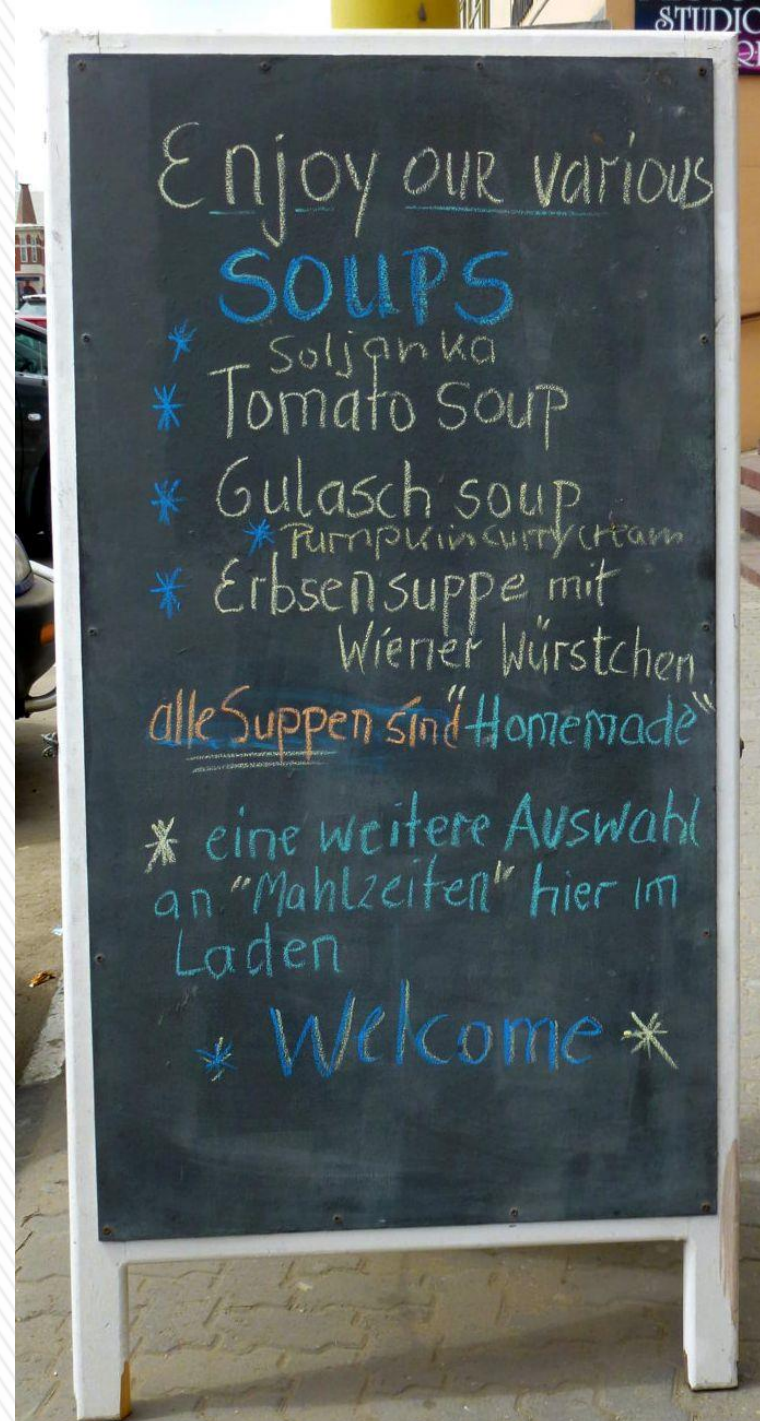 STUDIO
Enjoy OUR various
SOUPS
* Soljanka
* Tomato Soup
* Gulasch soup
* Pumpkincurrycream
* Erbsensuppe mit
Wiener Würstchen
alle Suppen sind "Homemade"
* eine weitere Auswahl
an "Mahlzeiten" hier im
Laden
* Welcome *